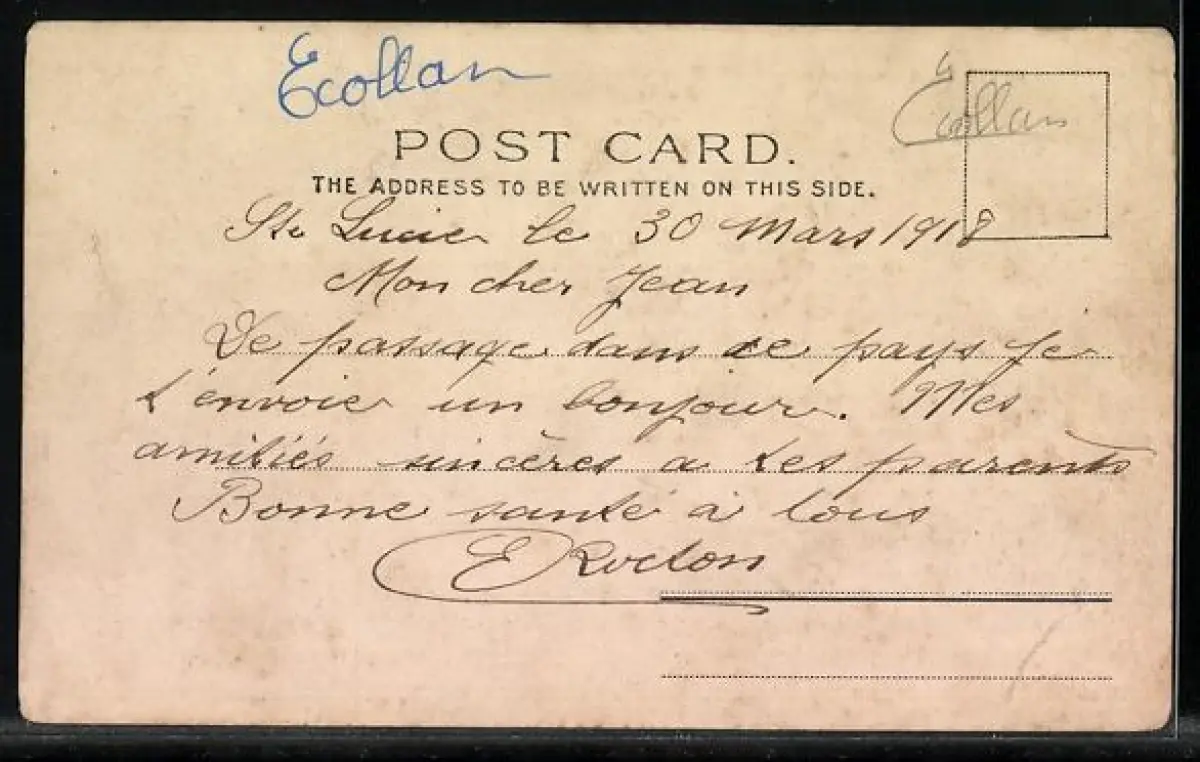 Ecollan
Ecollan
POST CARD.
THE ADDRESS TO BE WRITTEN ON THIS SIDE.
Ste Lucie le 30 Mars 1918
Mon cher Jean
De passage dans ce pays je
t'envoie un bonjour. Mes
amitiés sincères a tes parents
Bonne santé à tous
E